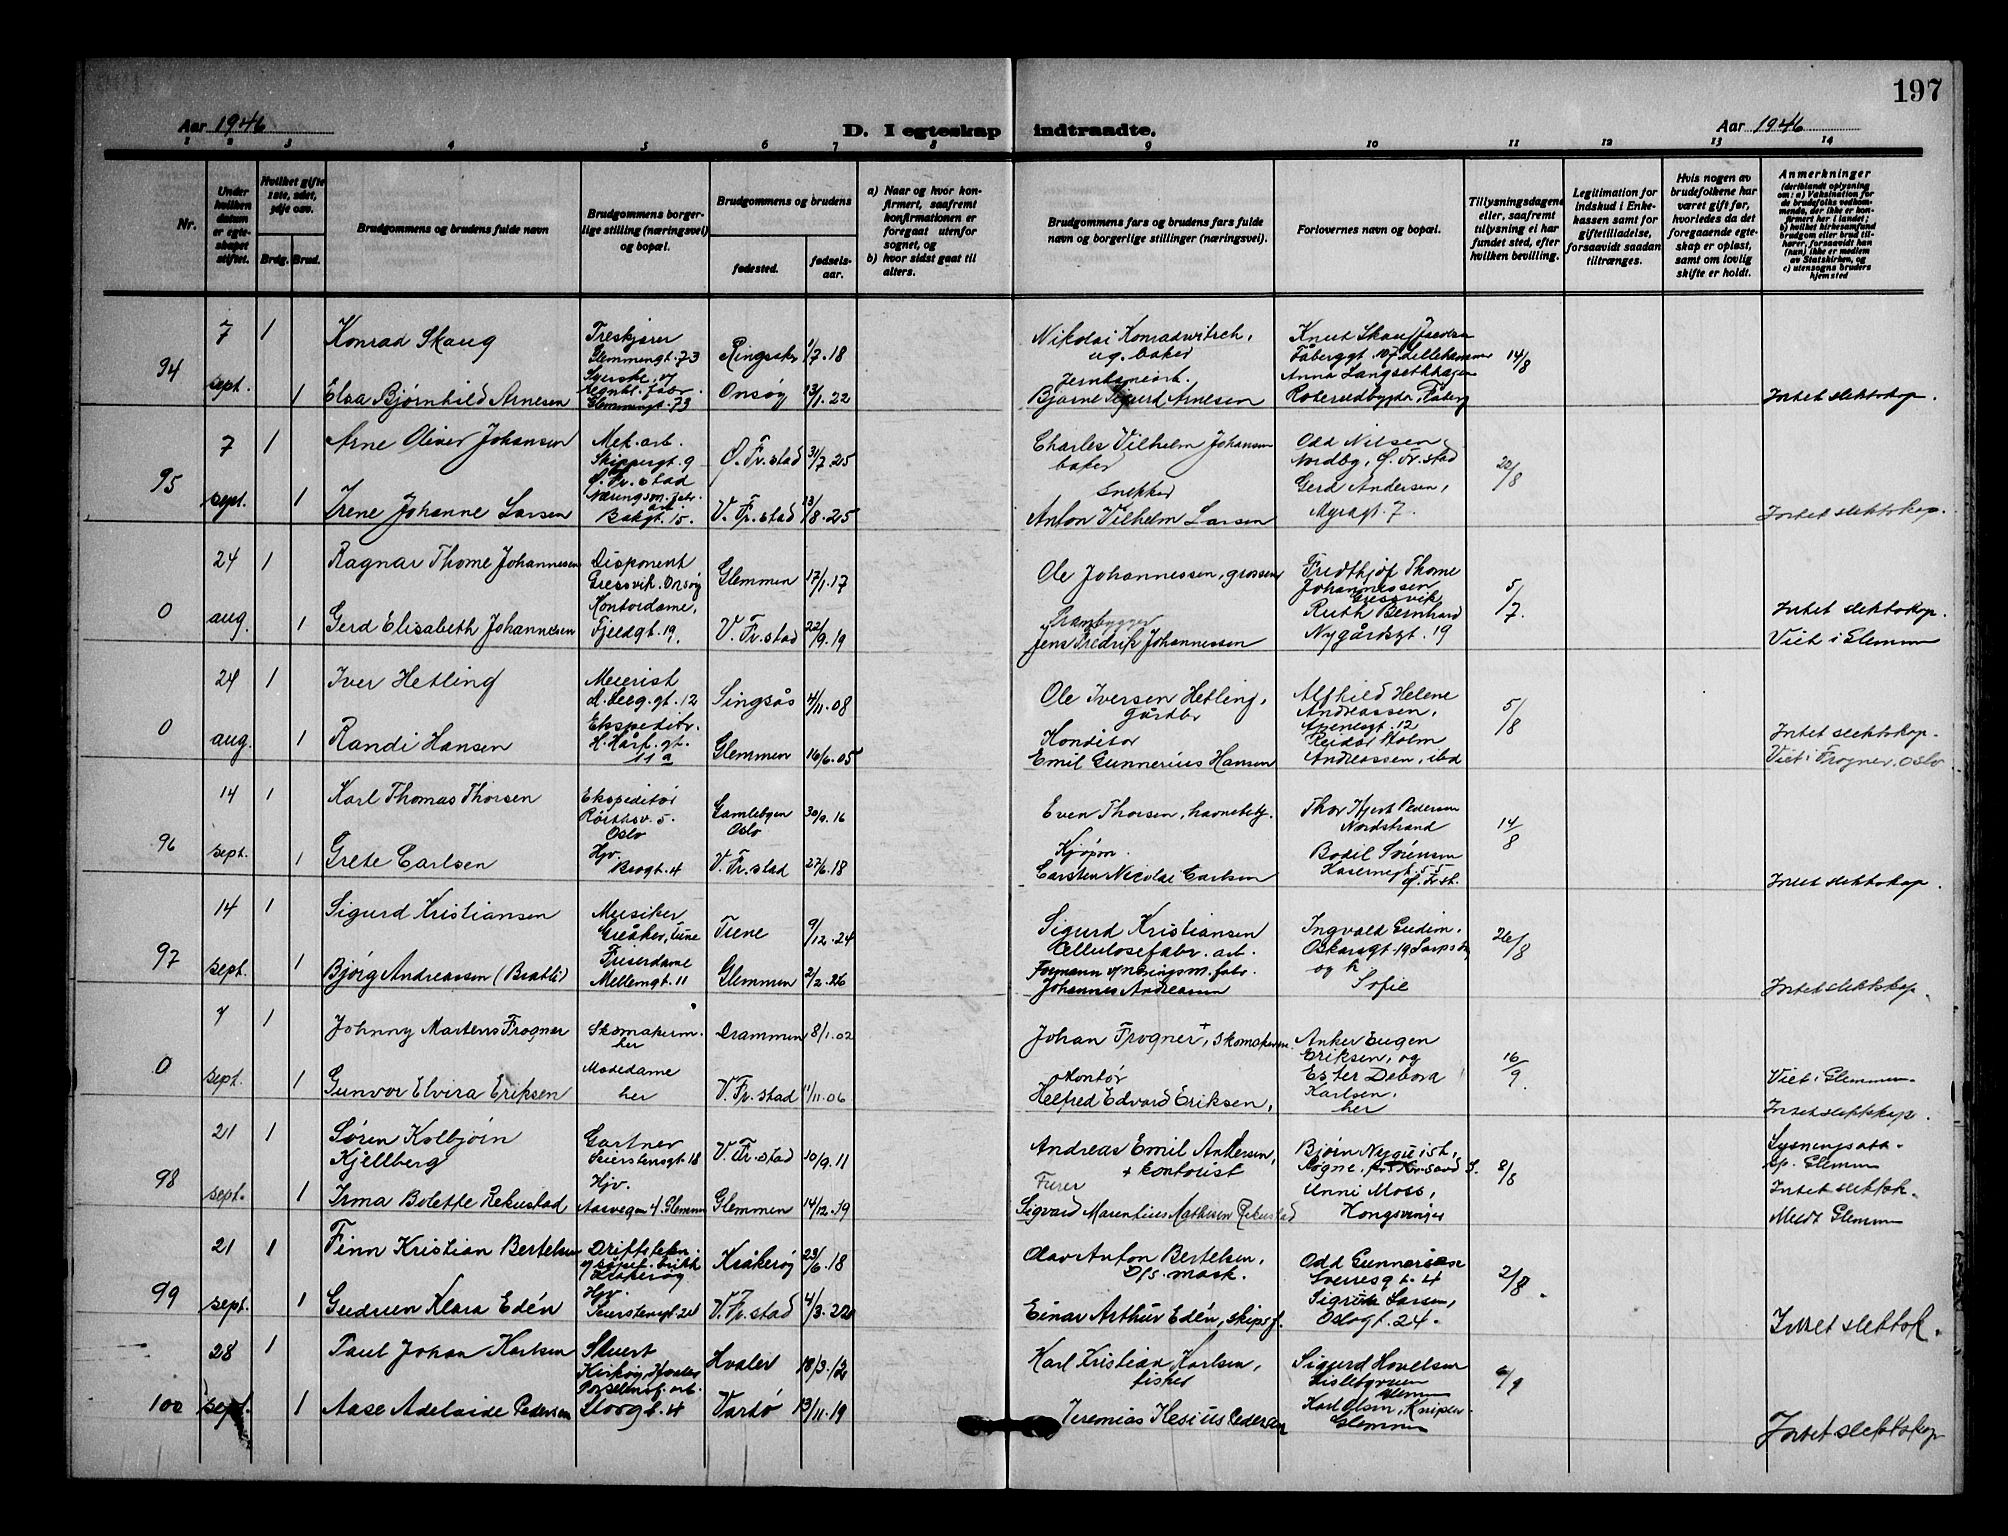 197
Aar 1946
D. I egteskap indtraadte.
Aar 1946
1 2 3 4 5 6 7 8 9 10 11 12 13 14
Nr.
Under hvilken datum er egteskapet stiftet.
Hvilket gifte 1ste, 2det, 3dje osv.
Brdg. Brud.
Brudgommens og brudens fulde navn
Brudgommens borgerlige stilling (næringsvei) og bopæl.
Brudgommens og brudens
fødested.
fødselsaar.
a) Naar og hvor konfirmert, saafremt konfirmationen er foregaat utenfor sognet, og
b) hvor sidst gaat til alters.
Brudgommens fars og brudens fars fulde navn og borgerlige stillinger (næringsvei).
Forlovernes navn og bopæl.
Tillysningsdagene eller, saafremt tillysning ei har fundet sted, efter hvilken bevilling.
Legitimation for indskud i Enkekassen samt for giftetilladelse, forsaavidt saadan tiltrænges.
Hvis nogen av brudefolkene har været gift før, hvorledes da det foregaaende egteskap er opløst, samt om lovlig skifte er holdt.
Anmerkninger
(deriblandt oplysning om: a) Vaksination for de brudefolks vedkommende, der ikke er konfirmert her i landet; b) hvilket kirkesamfund brudgom eller brud tilhører, forsaavidt han (hun) ikke er medlem av Statskirken, og c) utensogns bruders hjemsted
94
7 sept.
1
Konrad Skaug
Treskjærer
Glemmengt. 73
Ringsaker
1/7.18
Nikolai Konradwitsch, ug. baker
Knut Skau
Fåberggt. 107 Lillehammer
14/8
1
Elsa Bjørnhild Arnesen
Syerske
Glemmengt. 73
Onsøy
13/1.22
Jernbanearb.
Bjarne Sigurd Arnesen
Anna Langsethhagen
Fåberg
Intet slektskap.
95
7 sept.
1
Arne Oliver Johansen
Mek. arb.
Skippergt. 9
Ø. Fr.stad
Ø. Fr.stad
31/7.25
Charles Vilhelm Johansen
baker
Odd Nilsen
Nordby, Ø. Fr.stad
20/8
1
Irene Johanne Larsen
Næringsm. fabr. arb.
Bakgt. 15.
V. Fr.stad
13/8.25
Snekker
Anton Vilhelm Larsen
Gerd Andersen,
Myragt. 7.
Intet slektskap.
0
24 aug.
1
Ragnar Thome Johannessen
Disponent
Gressvik. Onsøy
Glemmen
17/1.17
Ole Johannessen, grosserer
Fredthjof Thome
Johannessen
Gressvik
5/7.
1
Gerd Elisabeth Johannesen
Kontordame,
Fjeldgt. 19.
V. Fr.stad
22/9.19
Prambygger
Jens Fredrik Johannessen
Ruth Bernhard
Nygårdsgt. 19
Intet slektskap.
Viet i Glemmen
0
24 aug.
1
Iver Hetling
Meierist
Singsås
4/11.08
Ole Iversen Hetling,
gårdbr
Alfhild Helene
Andreassen,
5/8
1
Randi Hansen
Ekspeditr.
11 a
Glemmen
16/6.05
Konditor
Emil Gunnerius Hansen
Reidar Holm
Andreassen, ibd
Intet slektskap.
Viet i Frogner, Oslo
96
14 sept.
1
Karl Thomas Thorsen
Ekspeditør
Oslo
Gamlebyen
Oslo
30/9.16
Even Thorsen, havnebetj.
Thor Hjort Pedersen
Nordstrand
14/8
1
Grete Carlsen
Hjv.
Brogt. 4
V. Fr.stad
27/6.18
Kjøpm.
Carsten Nicolai Carlsen
Bodil Sørensen
Kasernegt. 55
Ø. Fr.st.
Intet slektskap.
97
14 sept.
1
Sigurd Kristiansen
Musiker
Greåker, Tune
Tune
9/12.24
Sigurd Kristiansen
Cellulosefabr. arb.
Ingvald Gudim,
Oskarsgt. 19 Sarpsborg
26/8
1
Bjørg Andreassen (Bratli)
Friserdame
Mellemgt. 11
Glemmen
2/2.26
Formann v/ Næringsm. fabr.
Johannes Andreassen
og h
Sofie
Intet slektskap.
0
7 sept.
1
Johnny Martens Frogner
Skomakerm.
her
Drammen
8/1.02
Johan Frogner +, skomakerm.
Anker Eugen
Eriksen, og
16/9
1
Gunvor Elvira Eriksen
Modedame
her
V. Fr.stad
11/11.06
Kontor
Helfred Edvard Eriksen,
Ester Debora
Karlsen,
her
Viet i Glemmen.
Intet slektskap.
98
21 sept.
1
Søren Kolbjørn
Kjellberg
Gartner
Seierstensgt. 18
V. Fr.stad
10/9.11
Andreas Emil Andersen,
+ kontorist
Bjørn Nyquist,
Søgne, Kr.sand S.
8/8
1
Irma Bolette Rekustad
Hjv.
Aasvegen 4. Glemmen
Glemmen
14/12.19
Furer
Sigvard Marentius Mathisen Rekustad
Unni Moss,
Kongsvinger
Lysningsatt.
sp. Glemmen
Intet slektsk.
Meldt Glemmen
99
21 sept.
1
Finn Kristian Bertelsen
Kråkerøy
Kråkerøy
23/6.18
Olav Anton Bertelsen,
D/s. mask.
Odd Gunnersen
Sverresgt. 4
2/8.
1
Gudrun Klara Edén
Hjv.
Seierstensgt. 24
V. Fr.stad
4/3.22
Einar Arthur Edén, skipsf.
Sigrun Larsen,
Oslogt. 24.
Intet slektsk.
100
28 sept.
1
Paul Johan Karlsen
Stuert
Kirkøy, Hvaler
Hvaler
10/3.12
Karl Kristian Karlsen,
fisker
Sigurd Hovelsen
Lislebyveien
Glemmen
6/9
1
Aase Adelaide Pedersen
Porselensf. arb.
Storgt. 4
Vartø
13/11.19
Jeremias Kesius Pedersen
Karl Olsen, Knipler
Glemmen
Intet slektskap